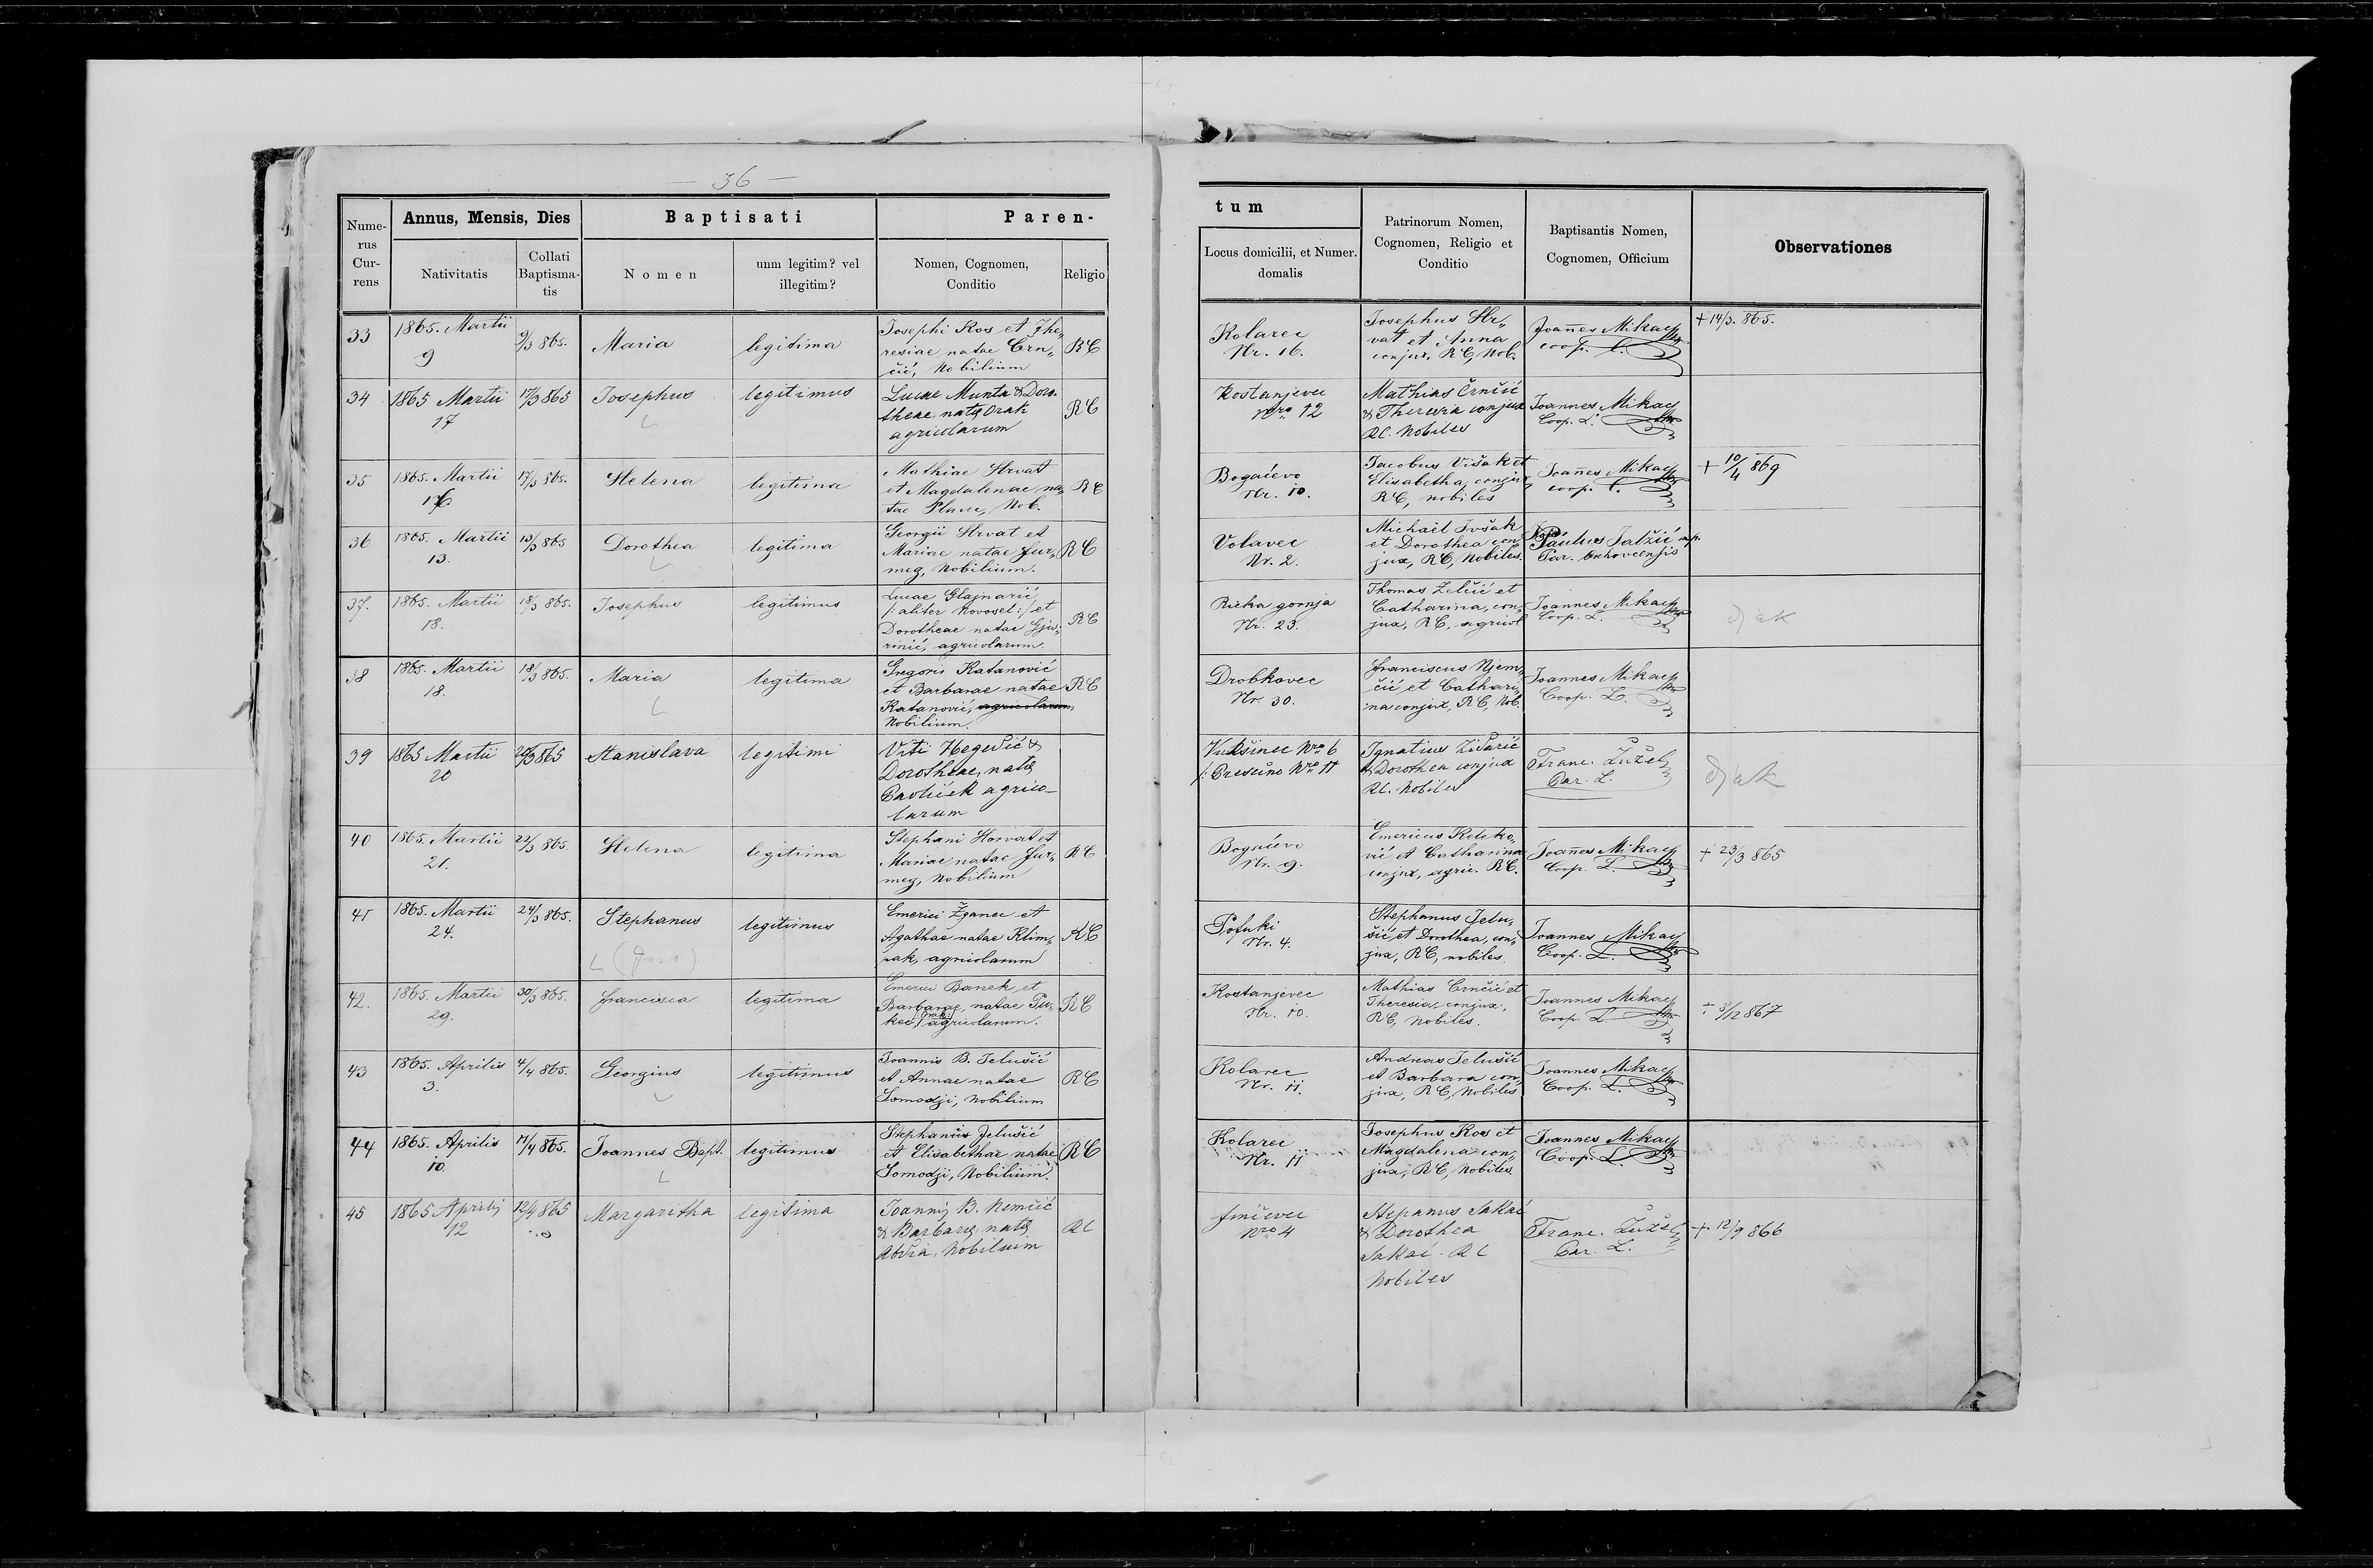 — 36 —
Nume-
rus
Cur-
rens
Annus, Mensis, Dies
Nativitatis
Collati
Baptisma-
tis
Baptisati
Nomen
unm legitim? vel
illegitim?
Paren-
Nomen, Cognomen,
Conditio
Religio
tum
Locus domicilii, et Numer.
domalis
Patrinorum Nomen,
Cognomen, Religio et
Conditio
Baptisantis Nomen,
Cognomen, Officium
Observationes
33
1865. Martii
9
9/3 865.
Maria
legitima
Josephi Kos et The„
resiae natae Crn„
čić, Nobilium
RC
Kolarec
Nr. 16.
Josephus Hr„
vat et Anna
conjux, RC, Nob.
Joañes Mikacz
coop. l.
+ 14/3. 865.
34
1865 Martii
17
17/3 865
Josephus
legitimus
Lucae Munta & Doro.
theae, natę Orak
agricolarum
RC
Kostanjevec
Nro 12
Mathias Črnčić
& Theresia conjux
RC. Nobiles
Joannes Mikacz
Coop. L.
35
1865. Martii
16
17/3 865.
Helena
legitima
Mathiae Hrvat
et Magdalenae na„
tae Plavec, Nob.
RC
Bogačevo
Nr. 10.
Jacobus Višak et
Elisabetha, conjux
RC, nobiles
Joañes Mikacz
coop. l.
+ 10/4 869
36
1865. Martii
13.
13/3 865
Dorothea
legitima
Georgii Hrvat et
Mariae natae Jur„
meg, Nobilium.
RC
Volavec
Nr. 2.
Michaël Ivšak
et Dorothea con„
jux, RC, Nobiles.
Paulus Jalžić mp
Par.
37.
1865. Martii
18.
18/3 865.
Josephus
legitimus
Lucae Glajnarić,
/: aliter Novosel :/ et
Dorotheae natae Gju„
rinić, agricolarum.
RC
Rieka gornja
Nr. 23.
Thomas Zelčić et
Catharina, con„
jux, RC, agricol
Joannes Mikacz
Coop. L.
djak
38
1865. Martii
18.
18/3 865.
Maria
legitima
Gregorii Katanović
et Barbarae natae
Katanović, agricolarum,
Nobilium
RC
Drobkovec
Nr. 30.
Franciscus Njem„
čić et Cathari„
na conjux, RC, Nob.
Joannes Mikacz
Coop. L.
39
1865 Martii
20
20/3 865
Stanislava
legitimi
Viti Hegedić &
Dorotheae, natę
Pavliček agrico-
larum
Vukšinec Nro 6
/: Presečno Nro 11
Ignatius Zidarić
& Dorothea conjux
RC. Nobiles
Franc. Žužel
Par. L.
djak
40
1865. Martii
21.
22/3 865.
Helena
legitima
Stephani Horvat et
Mariae natae Jur„
meg, Nobilium
RC
Bogačevo
Nr. 9.
Emericus Keleko„
vić et Catharina
conjux, agric. RC.
Joañes Mikacz
Coop. L.
+ 23/3 865
41
1865. Martii
24.
24/3 865.
Stephanus
legitimus
Emerici Žganec et
Agathae natae Klim„
pak, agricolarum
RC
Pofuki
Nr. 4.
Stephanus Jelu„
šić, et Dorothea, con„
jux, RC, nobiles.
Joannes Mikacz
Coop. L.
42.
1865. Martii
29.
30/3 865.
Francisca
legitima
Emerici Banek et
Barbarae, natae Pu„
kec, /: Orak :/ agricolarum.
RC
Kostanjevec
Nr. 10.
Mathias Crnčić et
Theresia, conjux,
RC, Nobiles.
Joannes Mikacz
Coop. L.
+ 8/12 867
43
1865. Aprilis
3.
4/4 865.
Georgius
legitimus
Joannis B. Jelušić
et Annae natae
Somodji, Nobilium
RC
Kolarec
Nr. 11.
Andreas Jelušić
et Barbara con„
jux, RC, Nobiles
Joannes Mikacz
Coop. L.
44
1865. Aprilis
10.
11/4 865.
Joannes Bapt.
legitimus
Stephanis Jelušić
et Elisabethae natae
Somodji, Nobilium.
RC
Kolarec
Nr. 11
Josephus Kos et
Magdalena con„
jux, RC, Nobiles
Joannes Mikacz
Coop. L.
45
1865 Aprilis
12
12/4 865
Margaritha
legitima
Joannis B. Nemčić
& Barbarę, natę
Nobilium
RC
Finčevec
Nro 4
Stepanus Sakač
& Dorothea
Sakač. RC
Nobiles
Franc. Žužel
Par. L.
+ 12/9 866